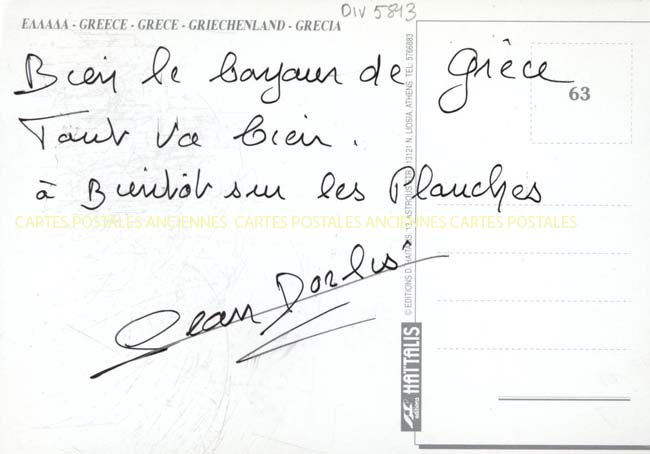 DIV 5843
ΕΛΛΑΔΑ - GREECE - GRECE - GRIECHENLAND - GRECIA
Bien le bonjour de Grèce
Tout va bien.
à Bientôt sur les Planches
CARTES POSTALES ANCIENNES CARTES POSTALES ANCIENNES CARTES POSTALES
Jean
63
© EDITIONS D. HAITALIS, 13121 N. LIOSIA, ATHENS TEL: 5766883
HAITALIS
editions